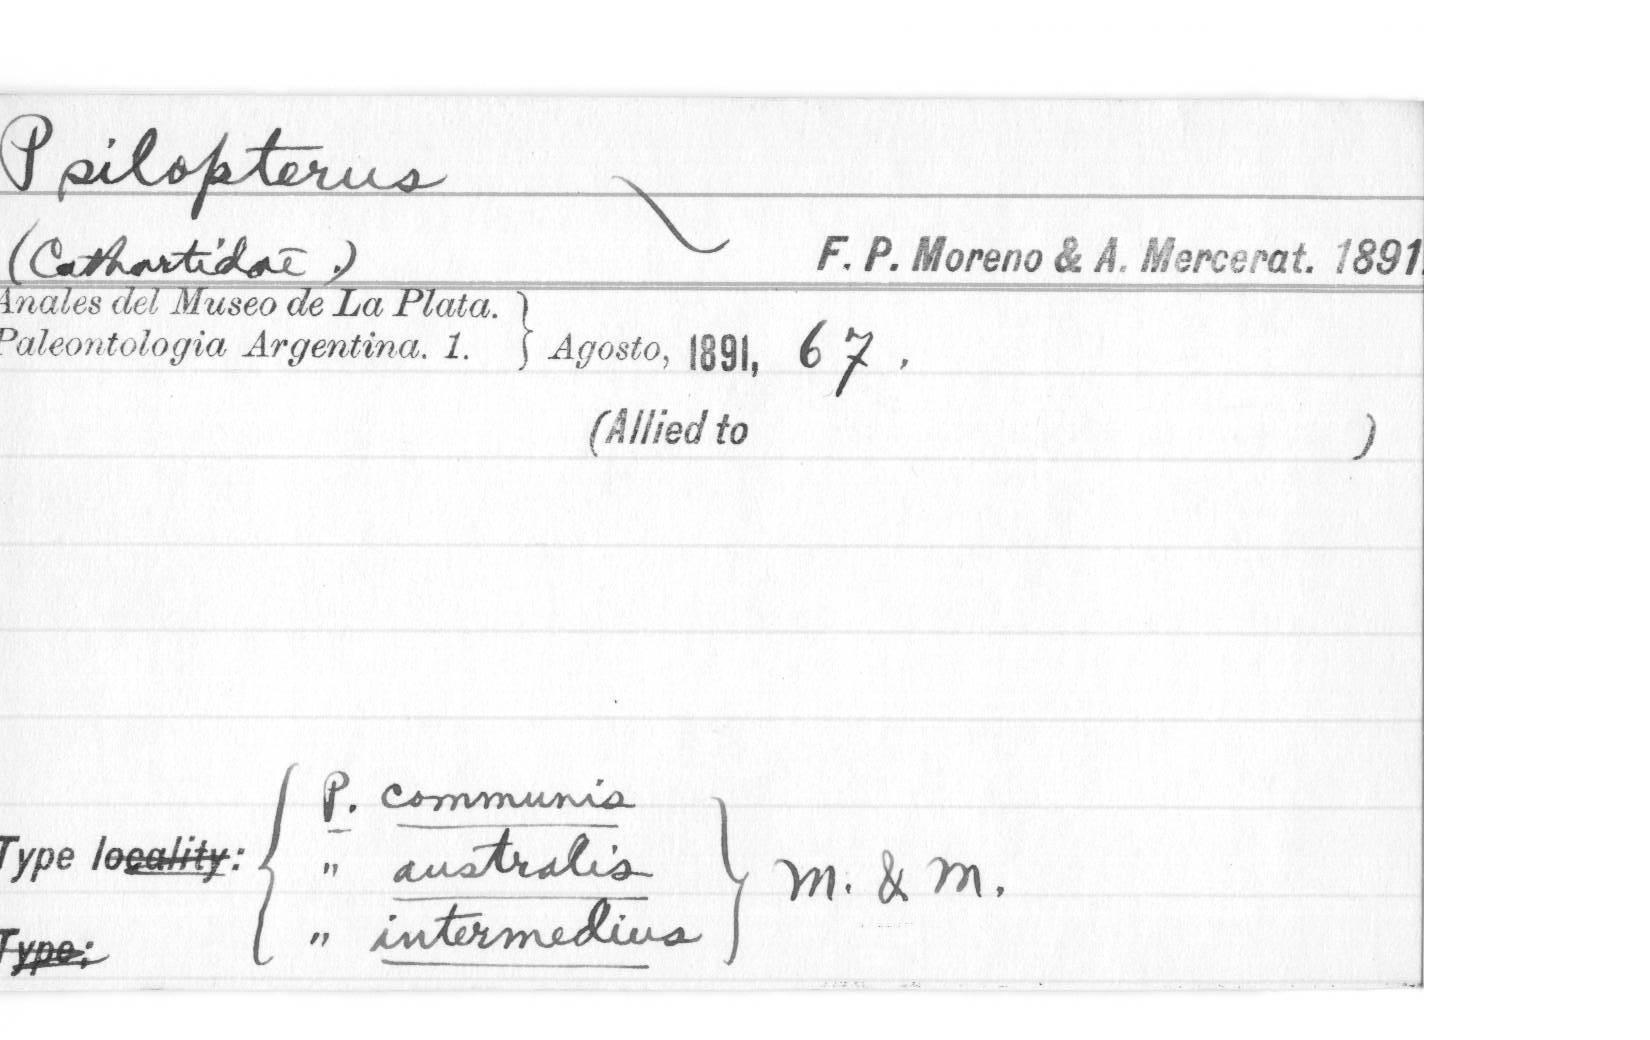 Psilopterus
(Cathartidae.)
F. P. Moreno & A. Mercerat. 1891.
Anales del Museo de La Plata.
Paleontologia Argentina. 1. } Agosto, 1891, 67.
(Allied to )
P. communis
Type locality: { " australis } M. & M.
" intermedius
Type: